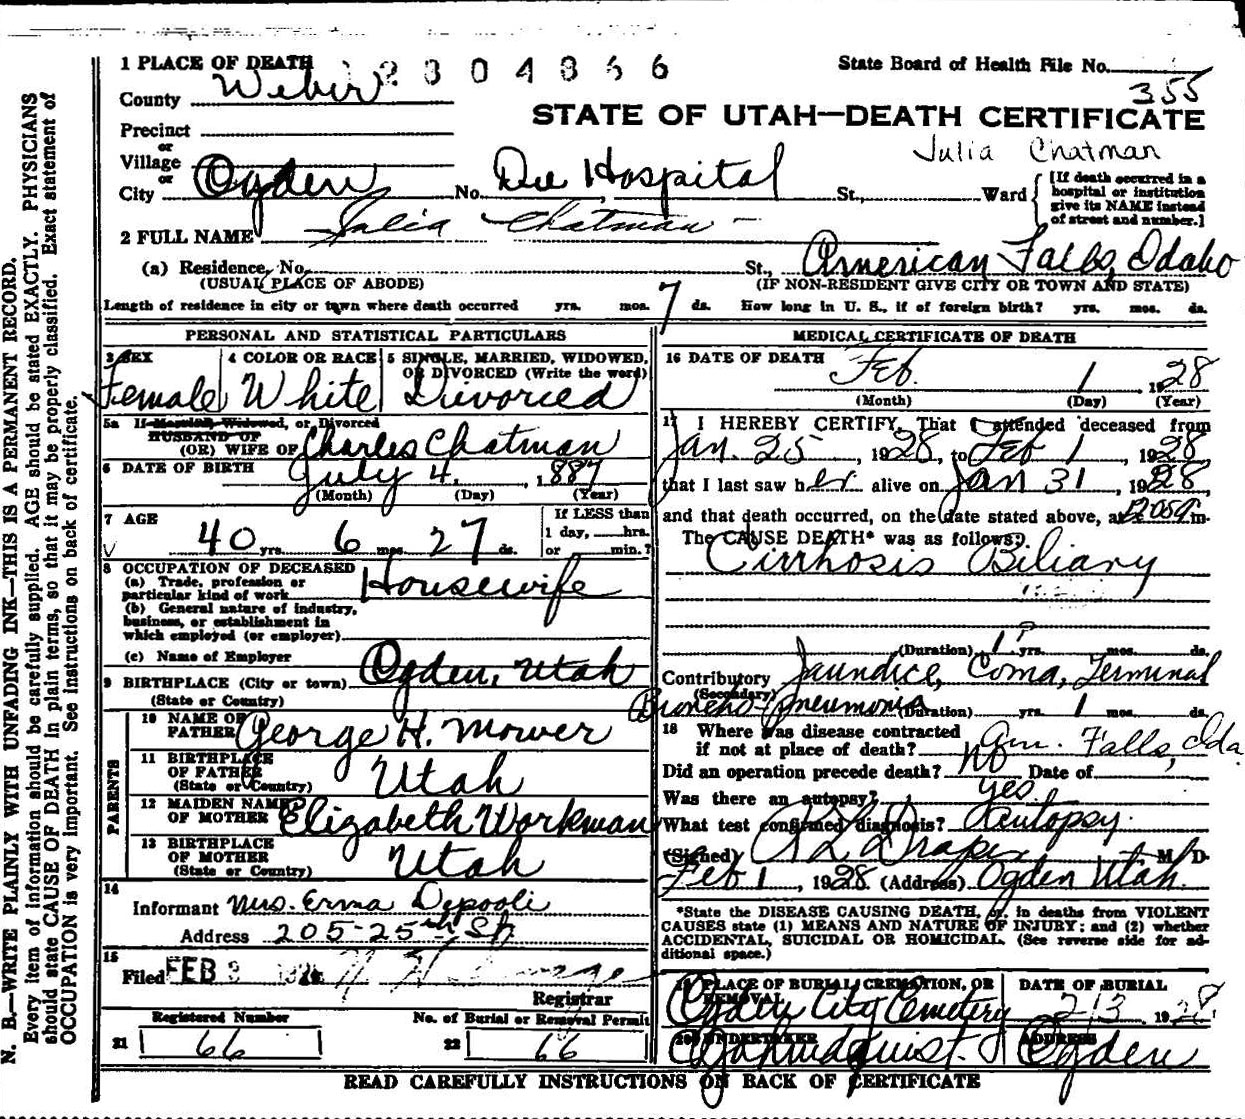 1 PLACE OF DEATH 2304366
State Board of Health File No.
355
County Weber
STATE OF UTAH—DEATH CERTIFICATE
Precinct
or
Village
or
Julia Chatman
City Ogden No. Dee Hospital St., Ward
[If death occurred in a
hospital or institution
give its NAME instead
of street and number.]
2 FULL NAME Julia Chatman
(a) Residence, No. St., American Falls, Idaho
(USUAL PLACE OF ABODE) (IF NON-RESIDENT GIVE CITY OR TOWN AND STATE)
Length of residence in city or town where death occurred yrs. mos. 7 ds. How long in U. S., if of foreign birth? yrs. mos. ds.
PERSONAL AND STATISTICAL PARTICULARS
3 SEX 4 COLOR OR RACE 5 SINGLE, MARRIED, WIDOWED,
OR DIVORCED (Write the word)
Female White Divorced
5a If Married, Widowed, or Divorced
HUSBAND OF
(OR) WIFE OF Charles Chatman
6 DATE OF BIRTH July 4, 1887
(Month) (Day) (Year)
7 AGE If LESS than
1 day, hrs.
40 yrs. 6 mos. 27 ds. or min.?
8 OCCUPATION OF DECEASED
(a) Trade, profession or
particular kind of work Housewife
(b) General nature of industry,
business, or establishment in
which employed (or employer)
(c) Name of Employer
9 BIRTHPLACE (City or town) Ogden, Utah
(State or Country)
PARENTS
10 NAME OF
FATHER George H. Mower
11 BIRTHPLACE
OF FATHER Utah
(State or Country)
12 MAIDEN NAME
OF MOTHER Elizabeth Workman
13 BIRTHPLACE
OF MOTHER Utah
(State or Country)
14
Informant Mrs. Erma Depooli
Address 205-25th St
15
Filed FEB 3
Registrar
Registered Number No. of Burial or Removal Permit
21 66 22 66
MEDICAL CERTIFICATE OF DEATH
16 DATE OF DEATH
Feb. 1, 1928
(Month) (Day) (Year)
17 I HEREBY CERTIFY, That I attended deceased from
Jan. 25, 1928, to Feb 1 1928
that I last saw her alive on Jan 31, 1928
and that death occurred, on the date stated above, at m.
The CAUSE DEATH* was as follows:
Cirrhosis Biliary
(Duration) 1? yrs. mos. ds.
Contributory Jaundice, Coma, Terminal
(Secondary)
Broncho-pneumonia (Duration) yrs. 1 mos. ds.
18 Where was disease contracted
if not at place of death? Am. Falls, Ida.
Did an operation precede death? No Date of
Was there an autopsy? yes
What test confirmed diagnosis? Autopsy.
(Signed) R L Draper M. D.
Feb 1, 1928 (Address) Ogden Utah.
*State the DISEASE CAUSING DEATH, or, in deaths from VIOLENT
CAUSES state (1) MEANS AND NATURE OF INJURY; and (2) whether
ACCIDENTAL, SUICIDAL OR HOMICIDAL. (See reverse side for ad-
ditional space.)
19 PLACE OF BURIAL, CREMATION, OR
REMOVAL DATE OF BURIAL
Ogden City Cemetery 2/3 1928
20 UNDERTAKER ADDRESS
Ogden
READ CAREFULLY INSTRUCTIONS ON BACK OF CERTIFICATE
N. B.—WRITE PLAINLY WITH UNFADING INK—THIS IS A PERMANENT RECORD.
Every item of information should be carefully supplied. AGE should be stated EXACTLY. PHYSICIANS
should state CAUSE OF DEATH in plain terms, so that it may be properly classified. Exact statement of
OCCUPATION is very important. See instructions on back of certificate.